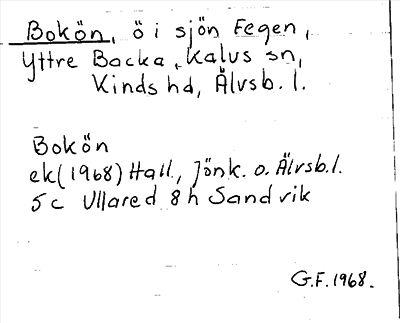 Bokön, ö i sjön Fegen,
Yttre Backa, Kalvs sn,
Kinds hd, Älvsb. l.
Bokön
ek (1968) Hall., Jönk. o. Älvsb. l.
5c Ullared 8h Sandvik
G.F. 1968.